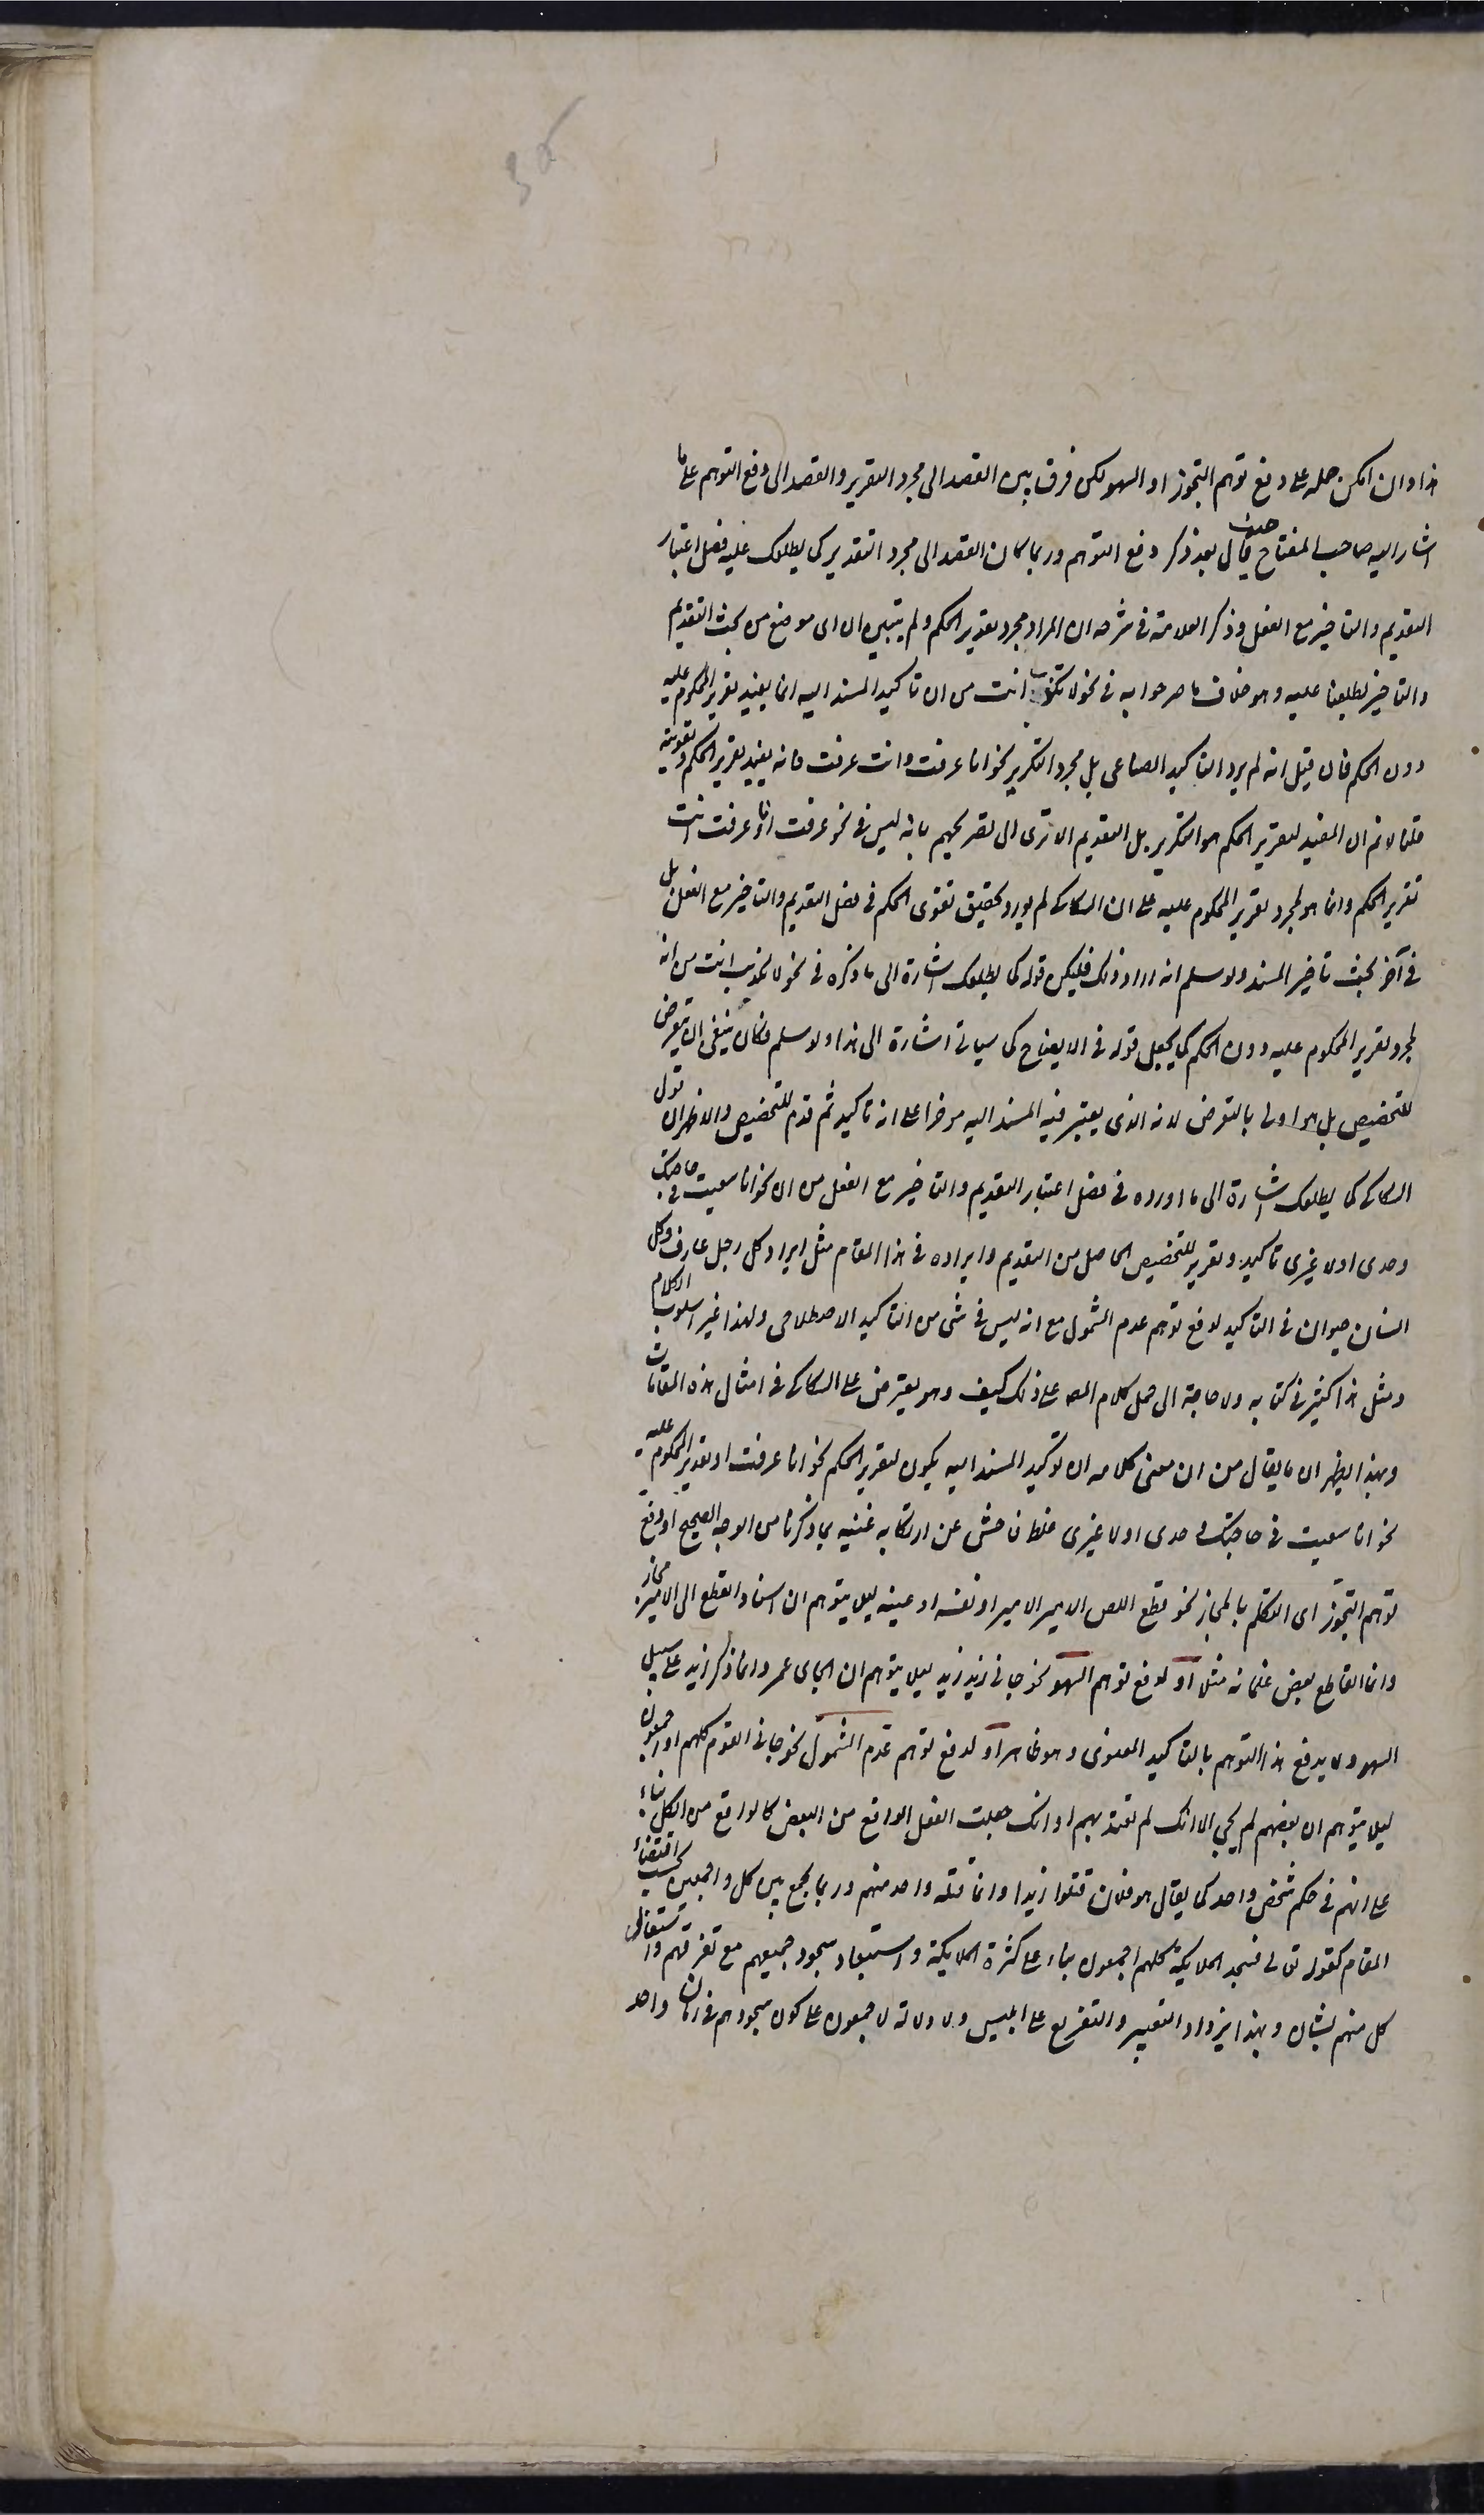 هذا وان امكن حمله على دفع توهم التجوز او السهو لكن فرق بين القصد الى مجرد التقرير والقصد الى دفع التوهم على ما
اشار اليه صاحب المفتاح حيث قال بعد ذكر دفع التوهم وربما كان القصد الى مجرد التقرير كما يطلعك عليه فصل اعتبار
التقديم والتاخير مع الفعل وذكر العلامة فى شرحه ان المراد مجرد تقرير الحكم ولم يتبين ان اى موضع من بحث التقديم
والتاخير يطلعنا عليه وهو خلاف ما صرحوا به فى نحو لا تكذب انت من ان تاكيد المسند اليه انما يفيد تقرير المحكوم عليه
دون الحكم فان قيل انه لم يرد التاكيد الصناعى بل مجرد التكرير نحو انا عرفت وانت عرفت فانه يفيد تقرير الحكم وتقويته
قلنا لا نم ان المفيد لتقرير الحكم هو التكرير بل التقديم الا ترى الى تصريحهم بانه ليس فى نحو عرفت انا وعرفت انت
تقرير الحكم وانما هو لمجرد تقرير المحكوم عليه على ان السكاكى لم يورد تحقيق تقوى الحكم فى فصل التقديم والتاخير مع الفعل بل
فى آخر بحث تاخير المسند ولو سلم انه اراد ذلك فليكن قوله كما يطلعك اشارة الى ما ذكره فى نحو لا تكذب انت من انه
لمجرد تقرير المحكوم عليه دون الحكم كما يجعل قوله فى الايضاح كما سياتى اشارة الى هذا ولو سلم فكان ينبغى ان يتعرض
للتخصيص بل هو اولى بالتعرض لانه الذى يعتبر فيه المسند اليه موخرا على انه تاكيد ثم قدم للتخصيص والاظهر ان قول
السكاكى كما يطلعك اشارة الى ما اورده فى فصل اعتبار التقديم والتاخير مع الفعل من ان نحو انا سعيت فى حاجتك
وحدى او لا غيرى تاكيد وتقرير للتخصيص الحاصل من التقديم وايراده فى هذا المقام مثل ايراد كل رجل عارف وكل
انسان حيوان فى التاكيد لدفع توهم عدم الشمول مع انه ليس فى شى من التاكيد الاصطلاحى ولهذا غير اسلوب الكلام
ومثل هذا كثير فى كتابه ولا حاجة الى حمل كلام المص على ذلك كيف وهو يعترض على السكاكى فى امثال هذه المقامات
وبهذا يظهر ان ما يقال من ان معنى كلامه ان توكيد المسند اليه يكون لتقرير الحكم نحو انا عرفت او تقرير المحكوم عليه
نحو انا سعيت فى حاجتك وحدى او لا غيرى غلط فاحش عن ارتكابه غنيه بما ذكرنا من الوجه الصحيح او دفع
توهم التجوز اى التكلم بالمجاز نحو قطع اللص الامير الامير او نفسه او عينه ليلا يتوهم ان اسناد القطع الى الامير مجاز
وانما القاطع بعض غلمانه مثلا او لدفع توهم السهو نحو جانى زيد زيد ليلا يتوهم ان الجاى عمر وانما ذكر زيد على سبيل
السهو ولا يدفع هذا التوهم بالتاكيد المعنوى وهو ظاهر او لدفع توهم عدم الشمول نحو جانى القوم كلهم او اجمعون
ليلا يتوهم ان بعضهم لم يجى الا انك لم تعتد بهم او انك جعلت الفعل الواقع من البعض كالواقع من الكل بناء
على انهم فى حكم شخص واحد كما يقال هو فلان قتلوا زيدا وانما قتله واحد منهم وربما يجمع بين كل واجمعين بحسب اقتضاء
المقام كقوله تعالى فسجد الملايكة كلهم اجمعون بناء على كثرة الملايكة واستبعاد سجود جميعهم مع تفرقهم واشتغال
كل منهم بشان وبهذا يزداد التعيير والتقريع على ابليس ولا دلالة لاجمعون على كون سجودهم فى زمان واحد